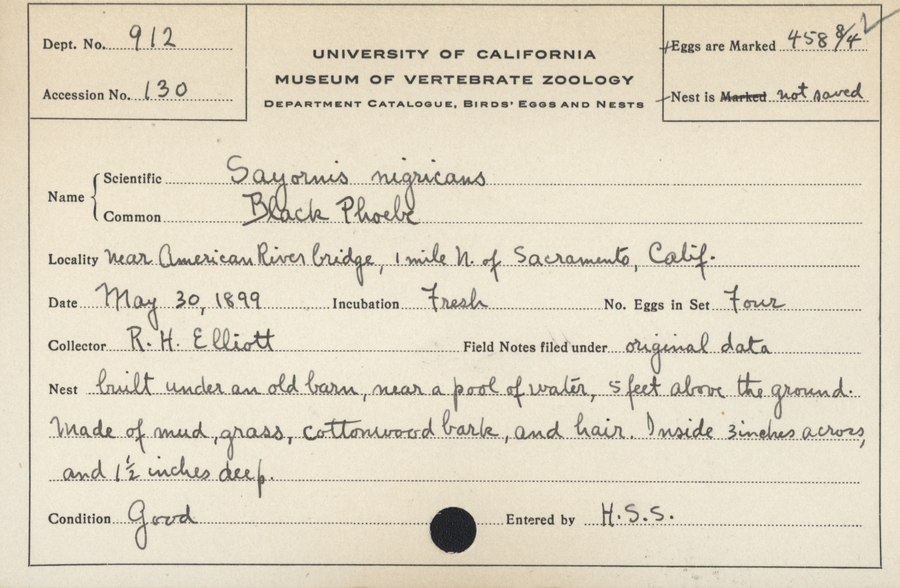 Dept. No. 912
Accession No. 130
UNIVERSITY OF CALIFORNIA
MUSEUM OF VERTEBRATE ZOOLOGY
DEPARTMENT CATALOGUE, BIRDS' EGGS AND NESTS
Eggs are Marked 458 8/4
Nest is Marked not saved
Name
Scientific Sayornis nigricans
Common Black Phoebe
Locality near American River bridge, 1 mile N. of Sacramento, Calif.
Date May 30, 1899 Incubation Fresh No. Eggs in Set Four
Collector R. H. Elliott Field Notes filed under original data
Nest built under an old barn, near a pool of water, 5 feet above the ground.
Made of mud, grass, cottonwood bark, and hair. Inside 3 inches across,
and 1½ inches deep.
Condition Good Entered by H.S.S.